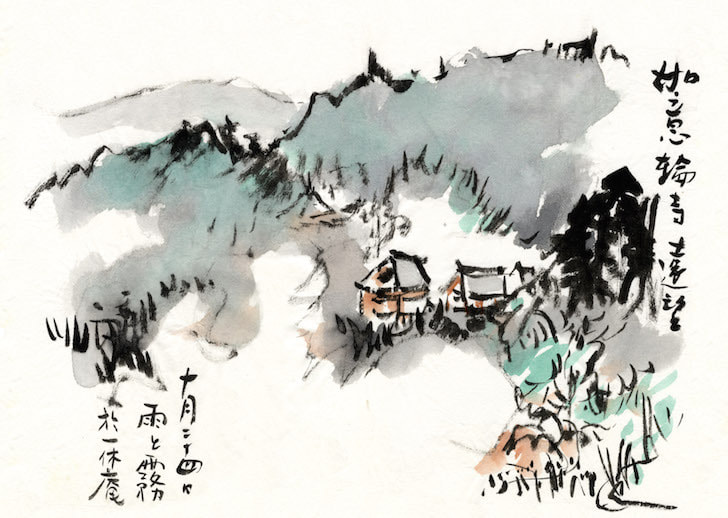 如意輪寺遠望
十月二十四日
雨と霧
於一休庵